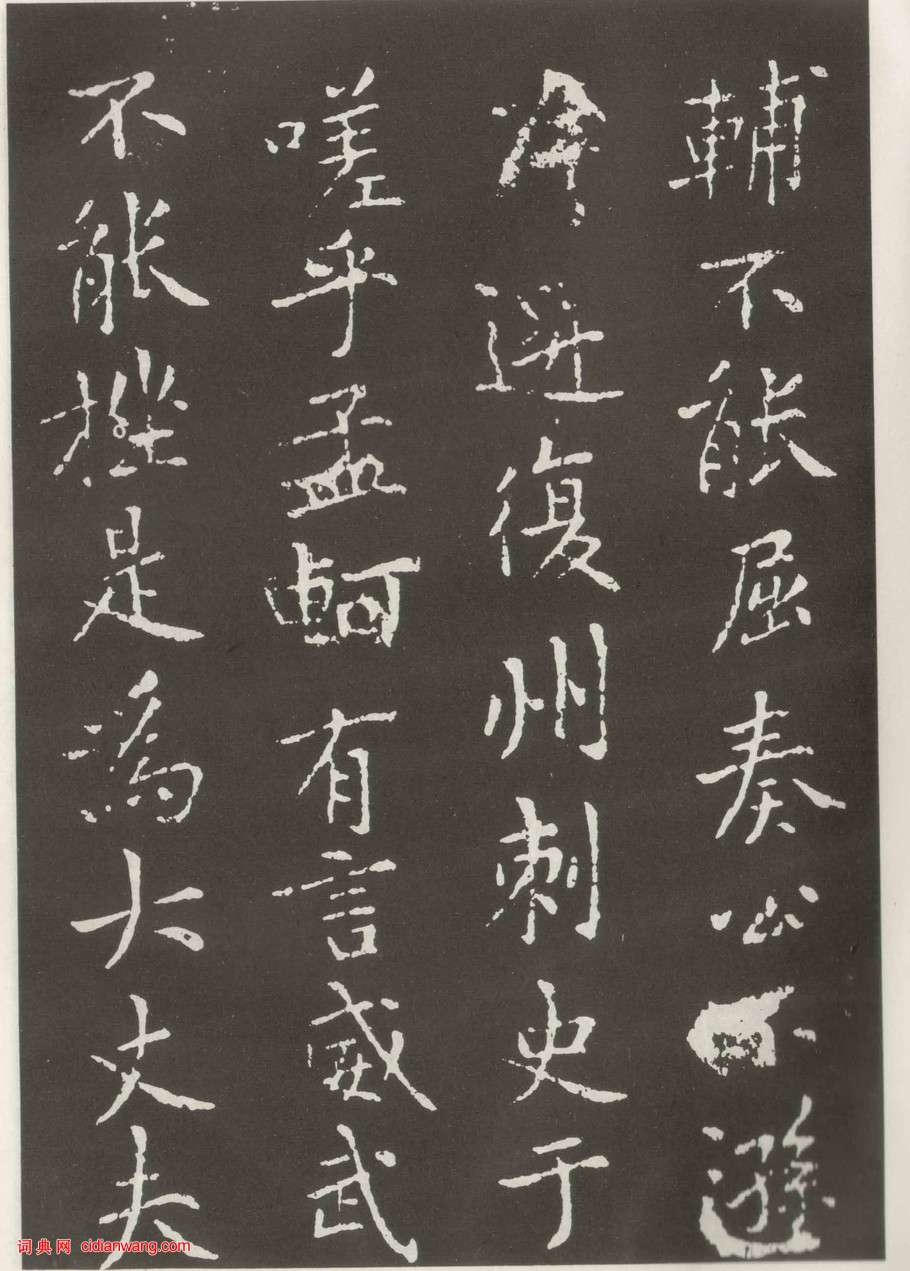 輔不能屈奏公遜
復州刺史于
嗟乎孟軻有言威武
不能挫是為大丈夫
词典网 cidianwang.com